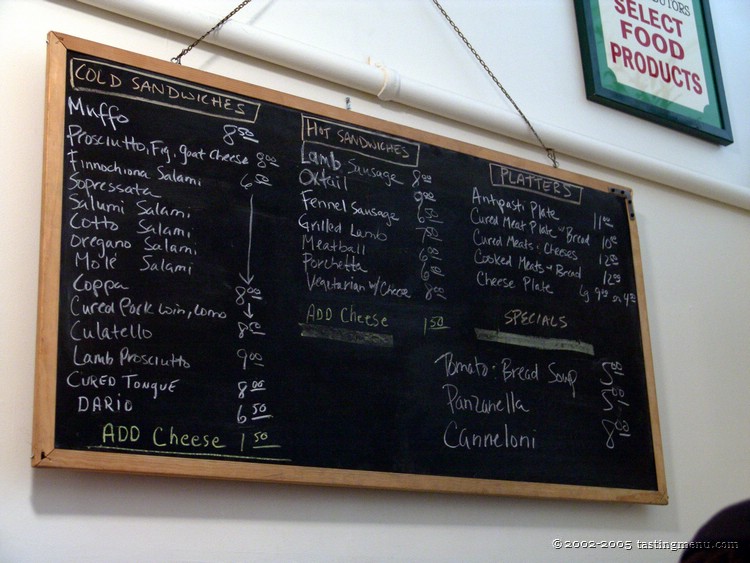 COLD SANDWICHES
Muffo 8.50
Prosciutto, Fig, goat cheese 8.00
Finnochiona Salami 6.50
Sopressata
Salumi Salami
Cotto Salami
Oregano Salami
Mole Salami
Coppa 8.00
Cured Pork Loin, Lomo
Culatello 8.00
Lamb Prosciutto 9.00
CURED TONGUE 8.00
DARIO 6.50
ADD Cheese 1.50
HOT SANDWICHES
Lamb Sausage 8.00
Oxtail 9.00
Fennel Sausage 6.50
Grilled Lamb 7.50
Meatball 6.00
Porchetta 6.00
Vegetarian w/Cheese 8.00
ADD Cheese 1.50
PLATTERS
Antipasti Plate 11.00
Cured Meat Plate w Bread 10.00
Cured Meats + Cheeses 12.00
Cooked Meats w Bread 12.00
Cheese Plate Lg 9.00 sm 4.50
SPECIALS
Tomato + Bread Soup 5.00
Panzanella
Canneloni 8.00
SELECT
FOOD
PRODUCTS
©2002-2005 tastingmenu.com